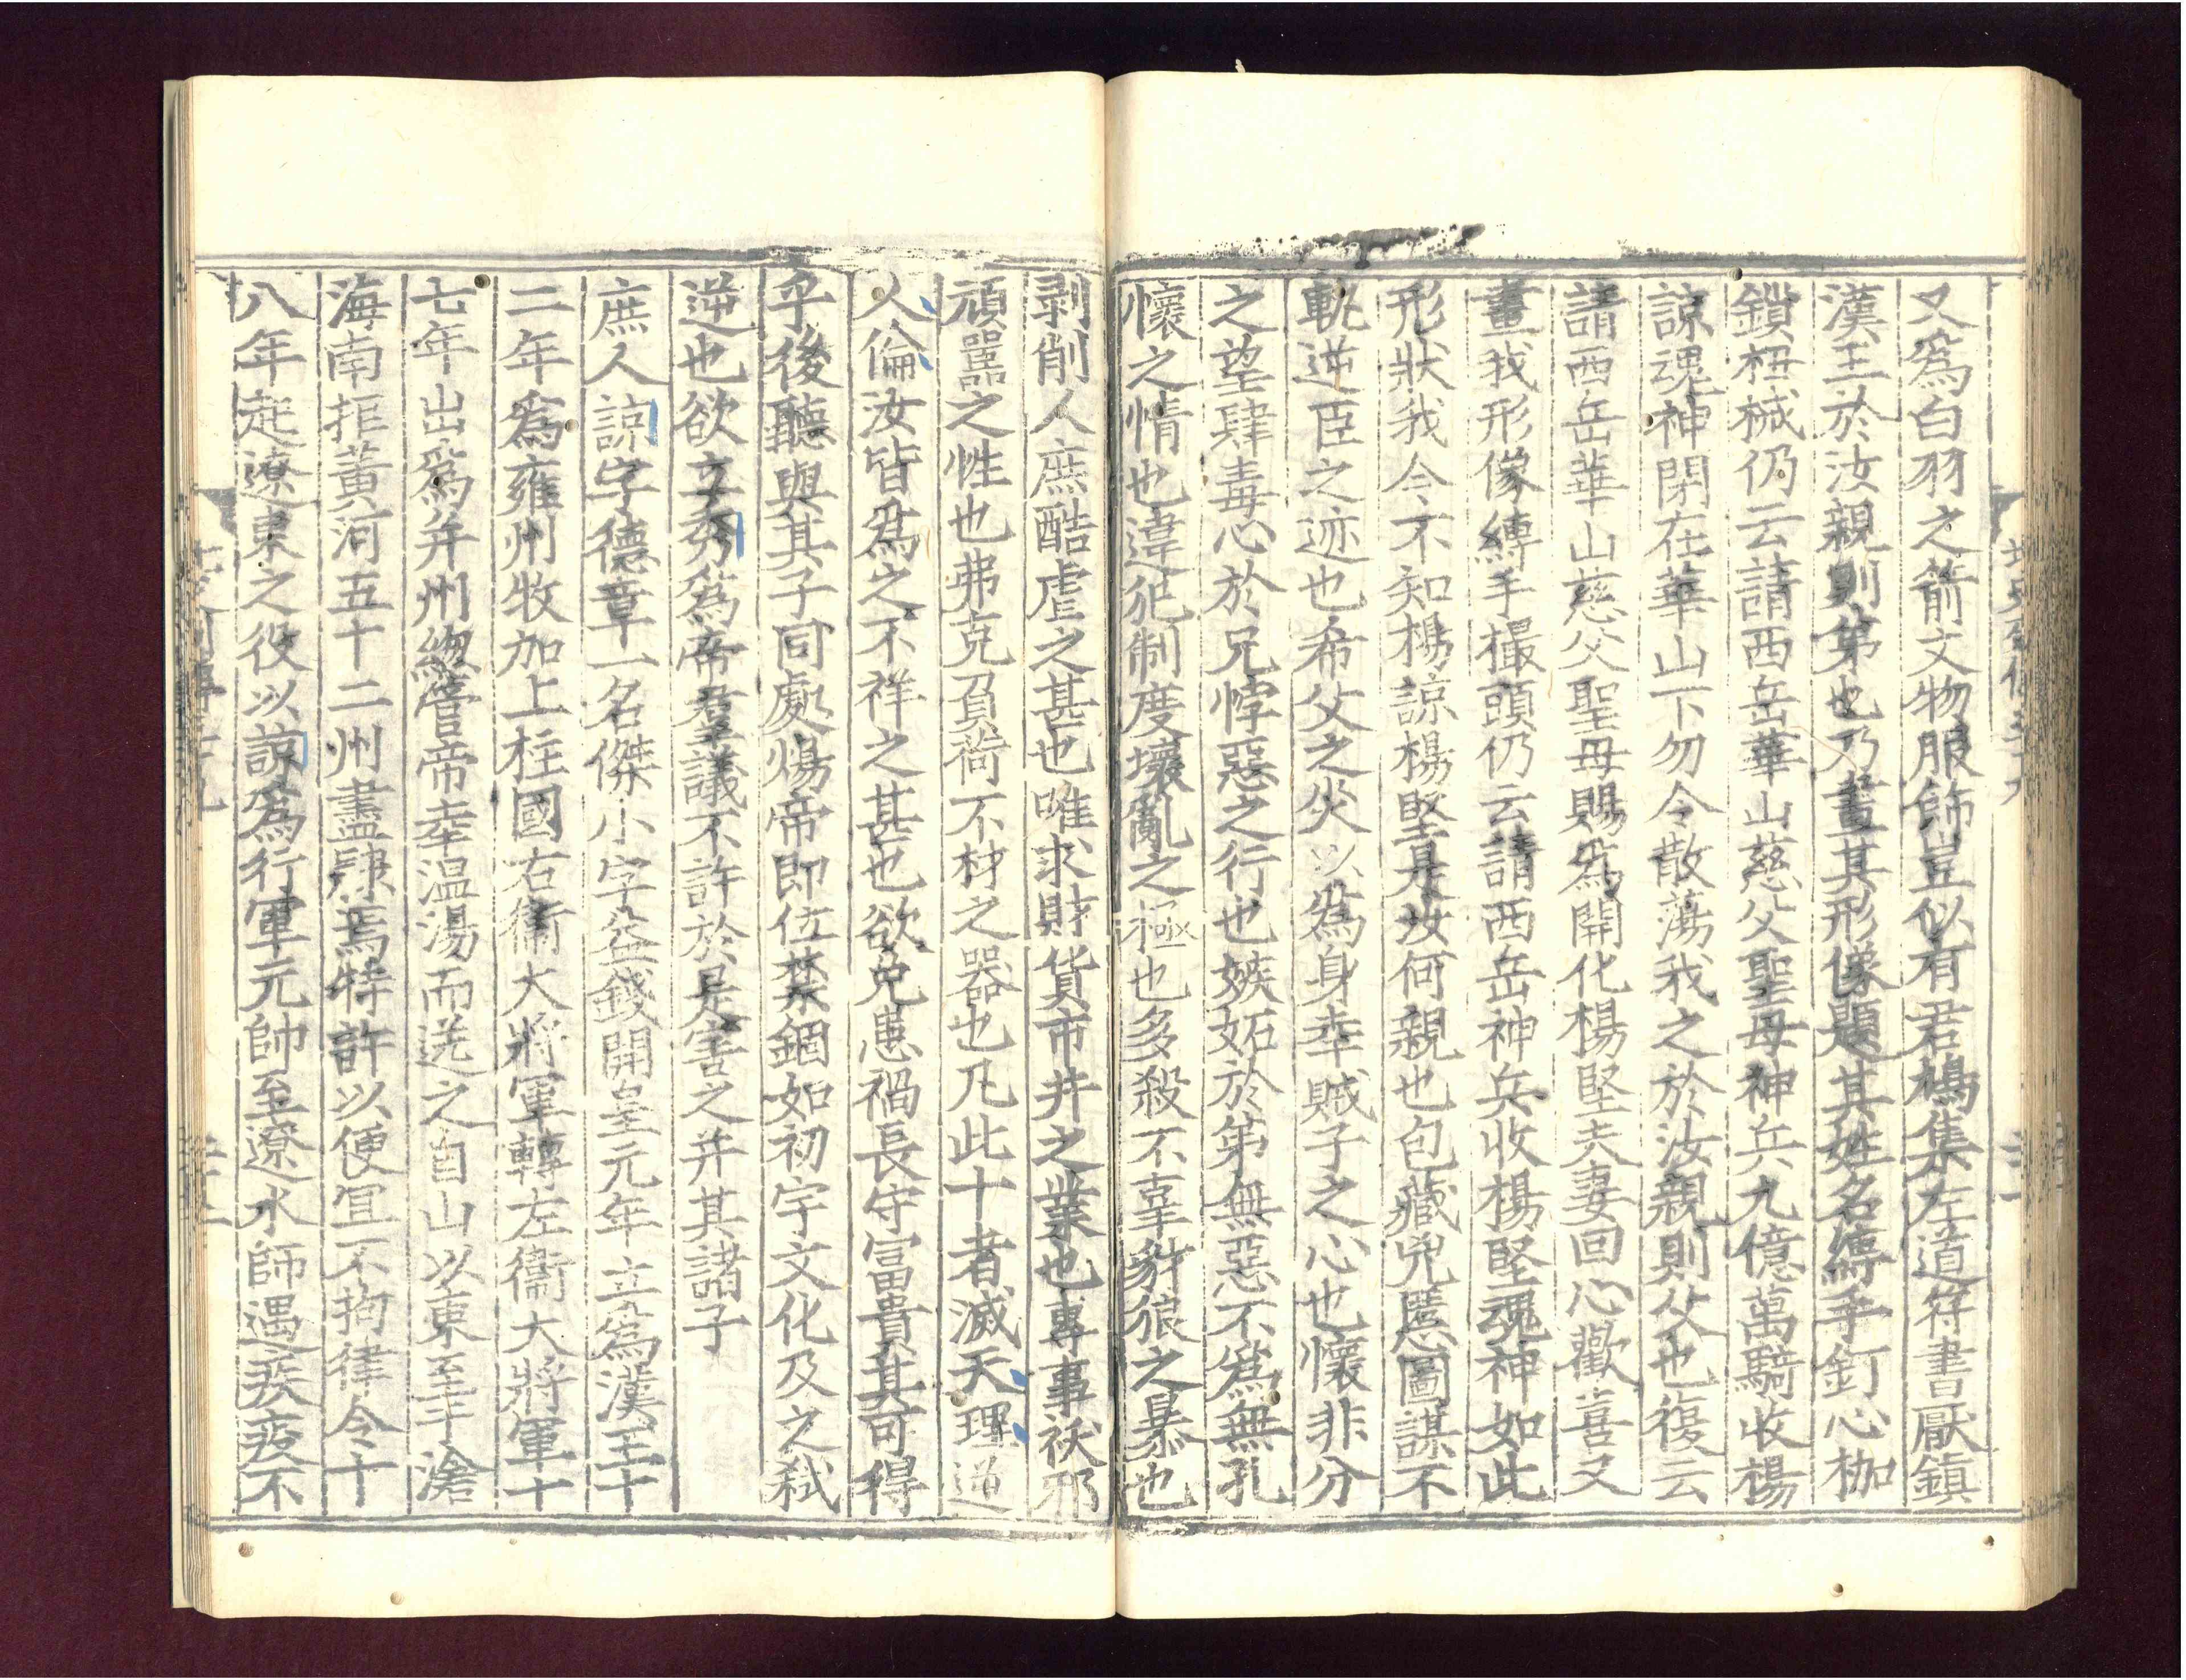 又為白羽之箭文物服飾豈似有君鳩集左道符書厭鎮
漢王於汝親則第也乃畫其形像題其姓名縛手釘心枷
鎖杻械仍云請西岳華山慈父聖母神兵九億萬騎收楊
諒魂神閉在華山下勿令散蕩我之於汝親則父也復云
請西岳華山慈父聖母賜為開化楊堅夫妻回心歡喜又
畫我形像縛手撮頭仍云請西岳神兵收楊堅魂神如此
形狀我今不知楊諒楊堅是汝何親也包藏兇慝圖謀不
軌逆臣之迹也希父之災以為身幸賊子之心也懷非分
之望肆毒心於兄悖惡之行也嫉妬於第無惡不為無孔
懷之情也違犯制度壞亂之極也多殺不辜豺狼之暴也
剥削人庶酷虐之甚也唯求財貨市井之業也專事祅邪
頑嚚之性也弗克負荷不材之器也凡此十者滅天理逆
人倫汝皆為之不祥之甚也欲免患禍長守富貴其可得
乎後聽與其子同處煬帝即位禁錮如初宇文化及之弑
逆也欲立秀為帝羣議不許於是害之并其諸子
庶人諒字德章一名傑小字益錢開皇元年立為漢王十
二年為雍州牧加上柱國右衛大將軍轉左衛大將軍十
七年出為并州緫管帝幸温湯而送之自山以東至于滄
海南拒黃河五十二州盡隸焉特許以便宜不拘律令十
八年起遼東之役以諒為行軍元帥至遼水師遇疾疫不